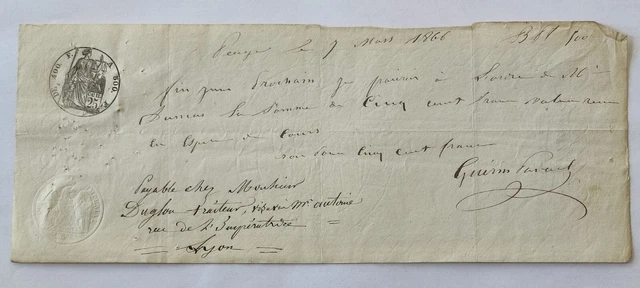 le 7 Mars 1866 B.P.F 500
fin juin prochain je paierai à l'ordre de Mr
Dumas la somme de Cinq cent francs valeur reçue
en espèces de cours
Bon pour Cinq cent francs
Payable chez Monsieur
traiteur, vis à vis Mr antoine
rue de L'Impératrice
Lyon
Guérin